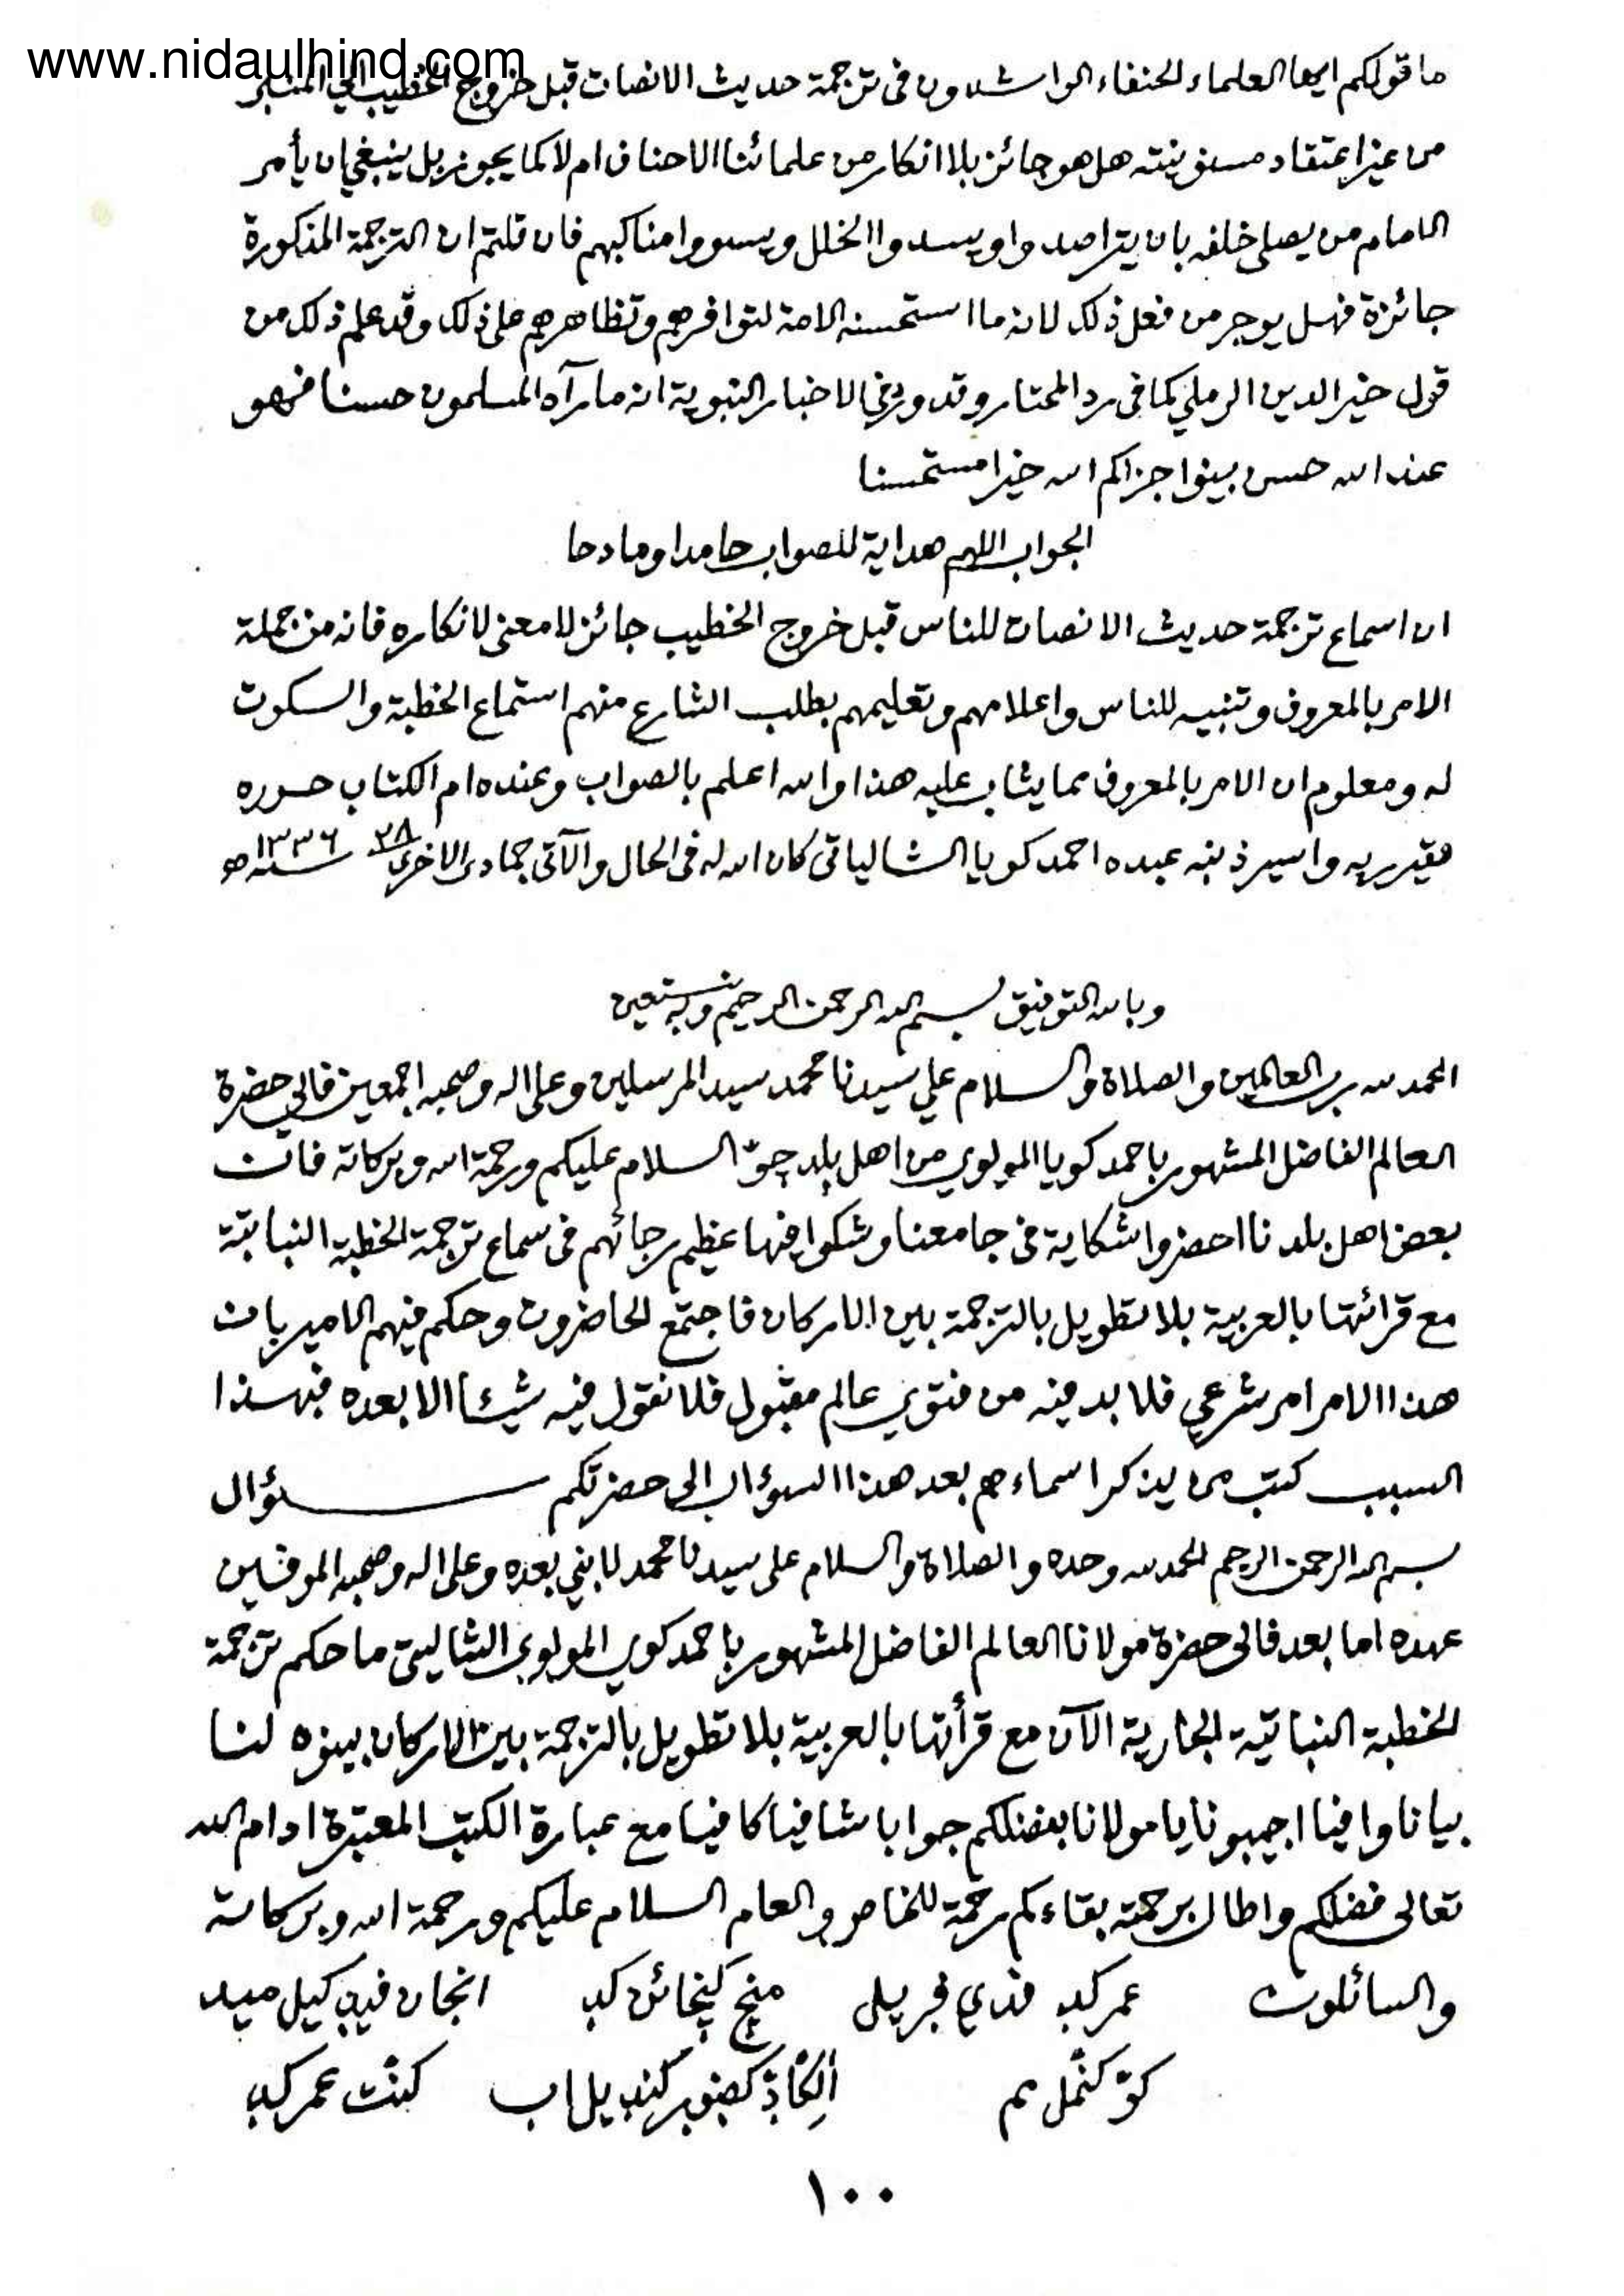 www.nidaulhind.com
ما قولكم ايها العلماء الحنفاء الراشدون في ترجمة حديث الانصات قبل خروج الخطيب الي المنبر
من غير اعتقاد هل هو جائز بلا انكار من علمائنا الاحناف ام لا كما يجوز بل ينبغي ان يأمر
الامام من يصلى خلفه بان يتراصدوا ويسدوا الخلل ويسووا مناكبهم فان قلتم ان الترجمة المذكورة
جائزة فهل يوجر من فعل ذلك لانه مما استحسنه الامة لتوافرهم وتظاهرهم على ذلك وقد علم ذلك من
قول خير الدين الرملي كما فى رد المحتار وقد ورد في الاخبار النبوية انه ما رآه المسلمون حسنا فهو
عند الله حسن بينوا جزاكم الله خيرا مستحسنا
الجواب اللهم هداية للصواب حامدا ومادحا
ان اسماع ترجمة حديث الانصات للناس قبل خروج الخطيب جائز لا معنى لانكاره فانه من جملة
الامر بالمعروف وتنبيه للناس واعلامهم وتعليمهم بطلب الشارع منهم استماع الخطبة والسكوت
له ومعلوم ان الامر بالمعروف مما يثاب عليه هذا والله اعلم بالصواب وعنده ام الكتاب حرره
فقير ربه واسير ذنبه عبده احمد كويا الشالياتى كان الله له فى الحال والآتى جمادى الاخرى ٢٨ سنة ١٣٣٦ ه
وبالله التوفيق بسم الله الرحمن الرحيم وبه نستعين
الحمد لله رب العالمين والصلاة والسلام علي سيدنا محمد سيد المرسلين وعلى اله وصحبه اجمعين فالي حضرة
العالم الفاضل المشهور باحمد كويا المولوي من اهل بلد السلام عليكم ورحمة الله وبركاته فان
بعض اهل بلدنا احضروا شكاية فى جامعنا وشكوا فيها عظيم رجائهم فى سماع ترجمة الخطبة النباتية
مع قرائتها بالعربية بلا تطويل بالترجمة بين الاركان فاجتمع الحاضرون وحكم فيهم الامير بان
هذا الامر امر شرعي فلا بد فيه من فتوي عالم مقبول فلا نقول فيه شيئا الا بعده فبهذا
السبب كتب من يذكر اسماءهم بعد هذا السؤال الى حضرتكم سؤال
بسم الله الرحمن الرحيم الحمد لله وحده والصلاة والسلام على سيدنا محمد لا نبي بعده وعلى اله وصحبه الموفين
عهده اما بعد فالى حضرة مولانا العالم الفاضل المشهور باحمد كوي المولوي الشاليتى ما حكم ترجمة
الخطبة النباتية الجارية الآن مع قرأتها بالعربية بلا تطويل بالترجمة بين الاركان بينوه لنا
بيانا وافيا اجيبونا يا مولانا بفضلكم جوابا شافيا كافيا مع عبارة الكتب المعتبرة ادام الله
تعالى فضلكم واطال برحمته بقاءكم رحمة للخاص والعام السلام عليكم ورحمة الله وبركاته
والسائلون عمر
عمر
١٠٠